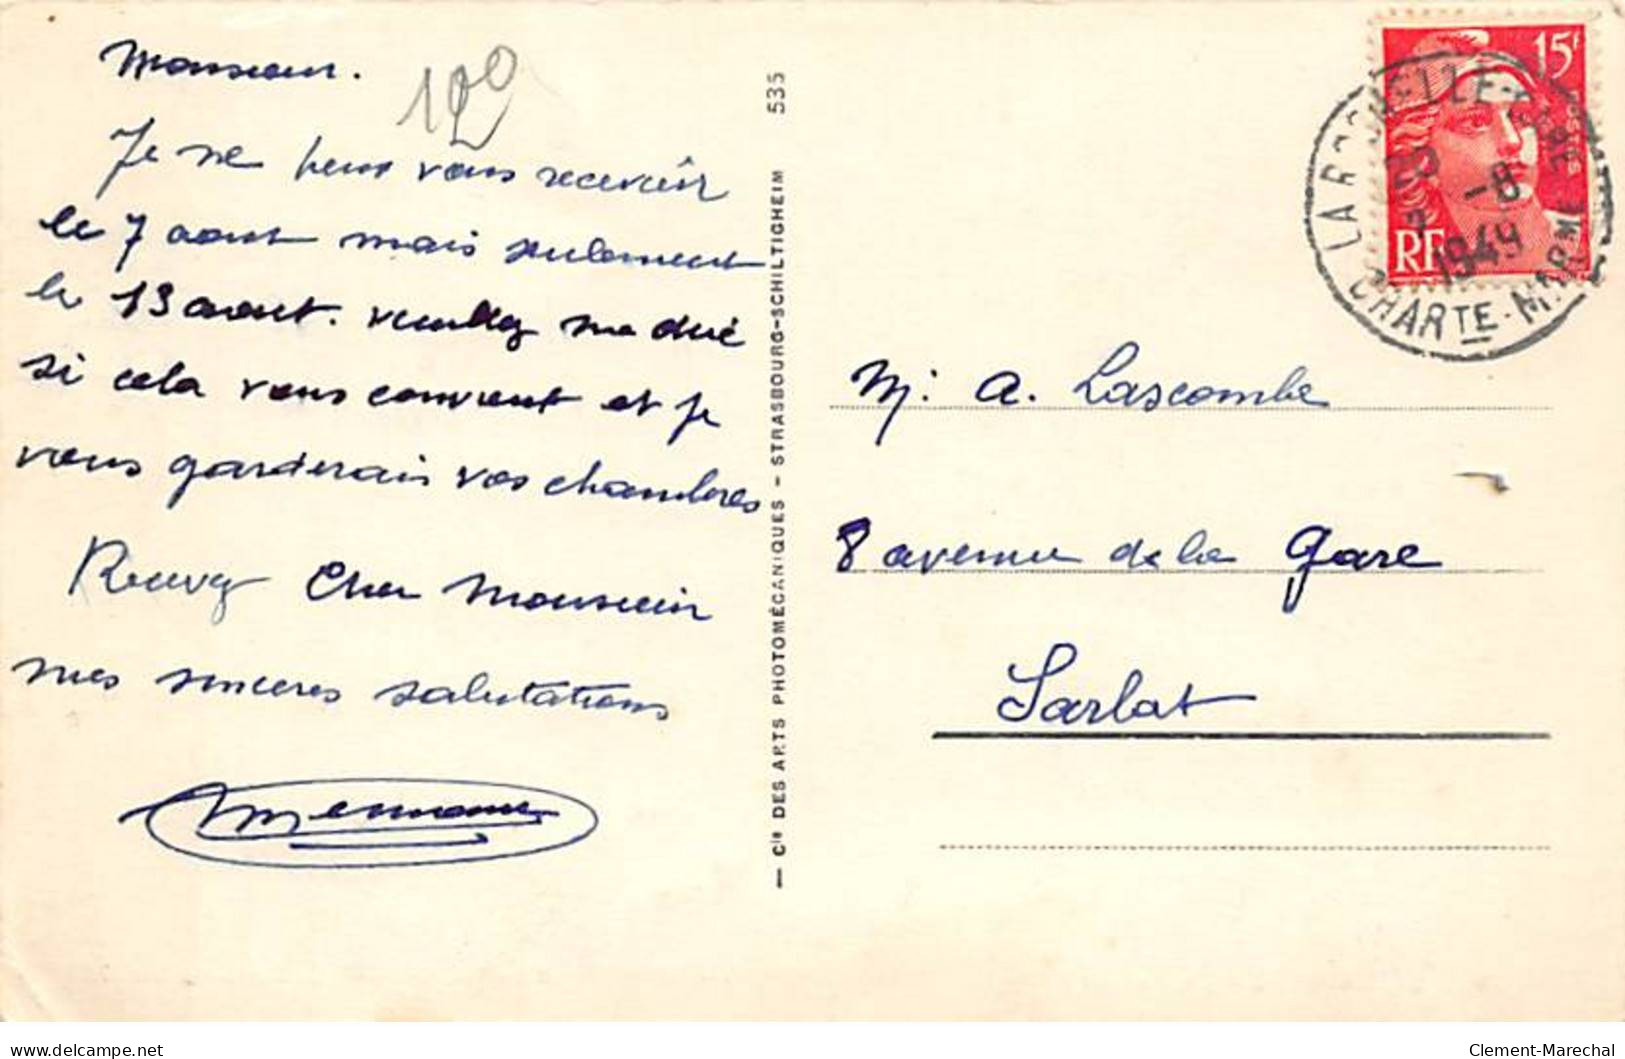 Monsieur.
Je ne peux vous recevoir
le 7 aout mais seulement
le 13 aout. veuillez me dire
si cela vous convient et je
vous garderais vos chambres
Recevez Cher Monsieur
mes sinceres salutations
— Cie DES ARTS PHOTOMÉCANIQUES - STRASBOURG-SCHILTIGHEIM 535
15F
RF
LA ROCHELLE-GARE
-8
1949
CHARTE-MARME
M. A. Lascombe
8 avenue de la Gare
Sarlat
delcampe.net
Clement-Marechal